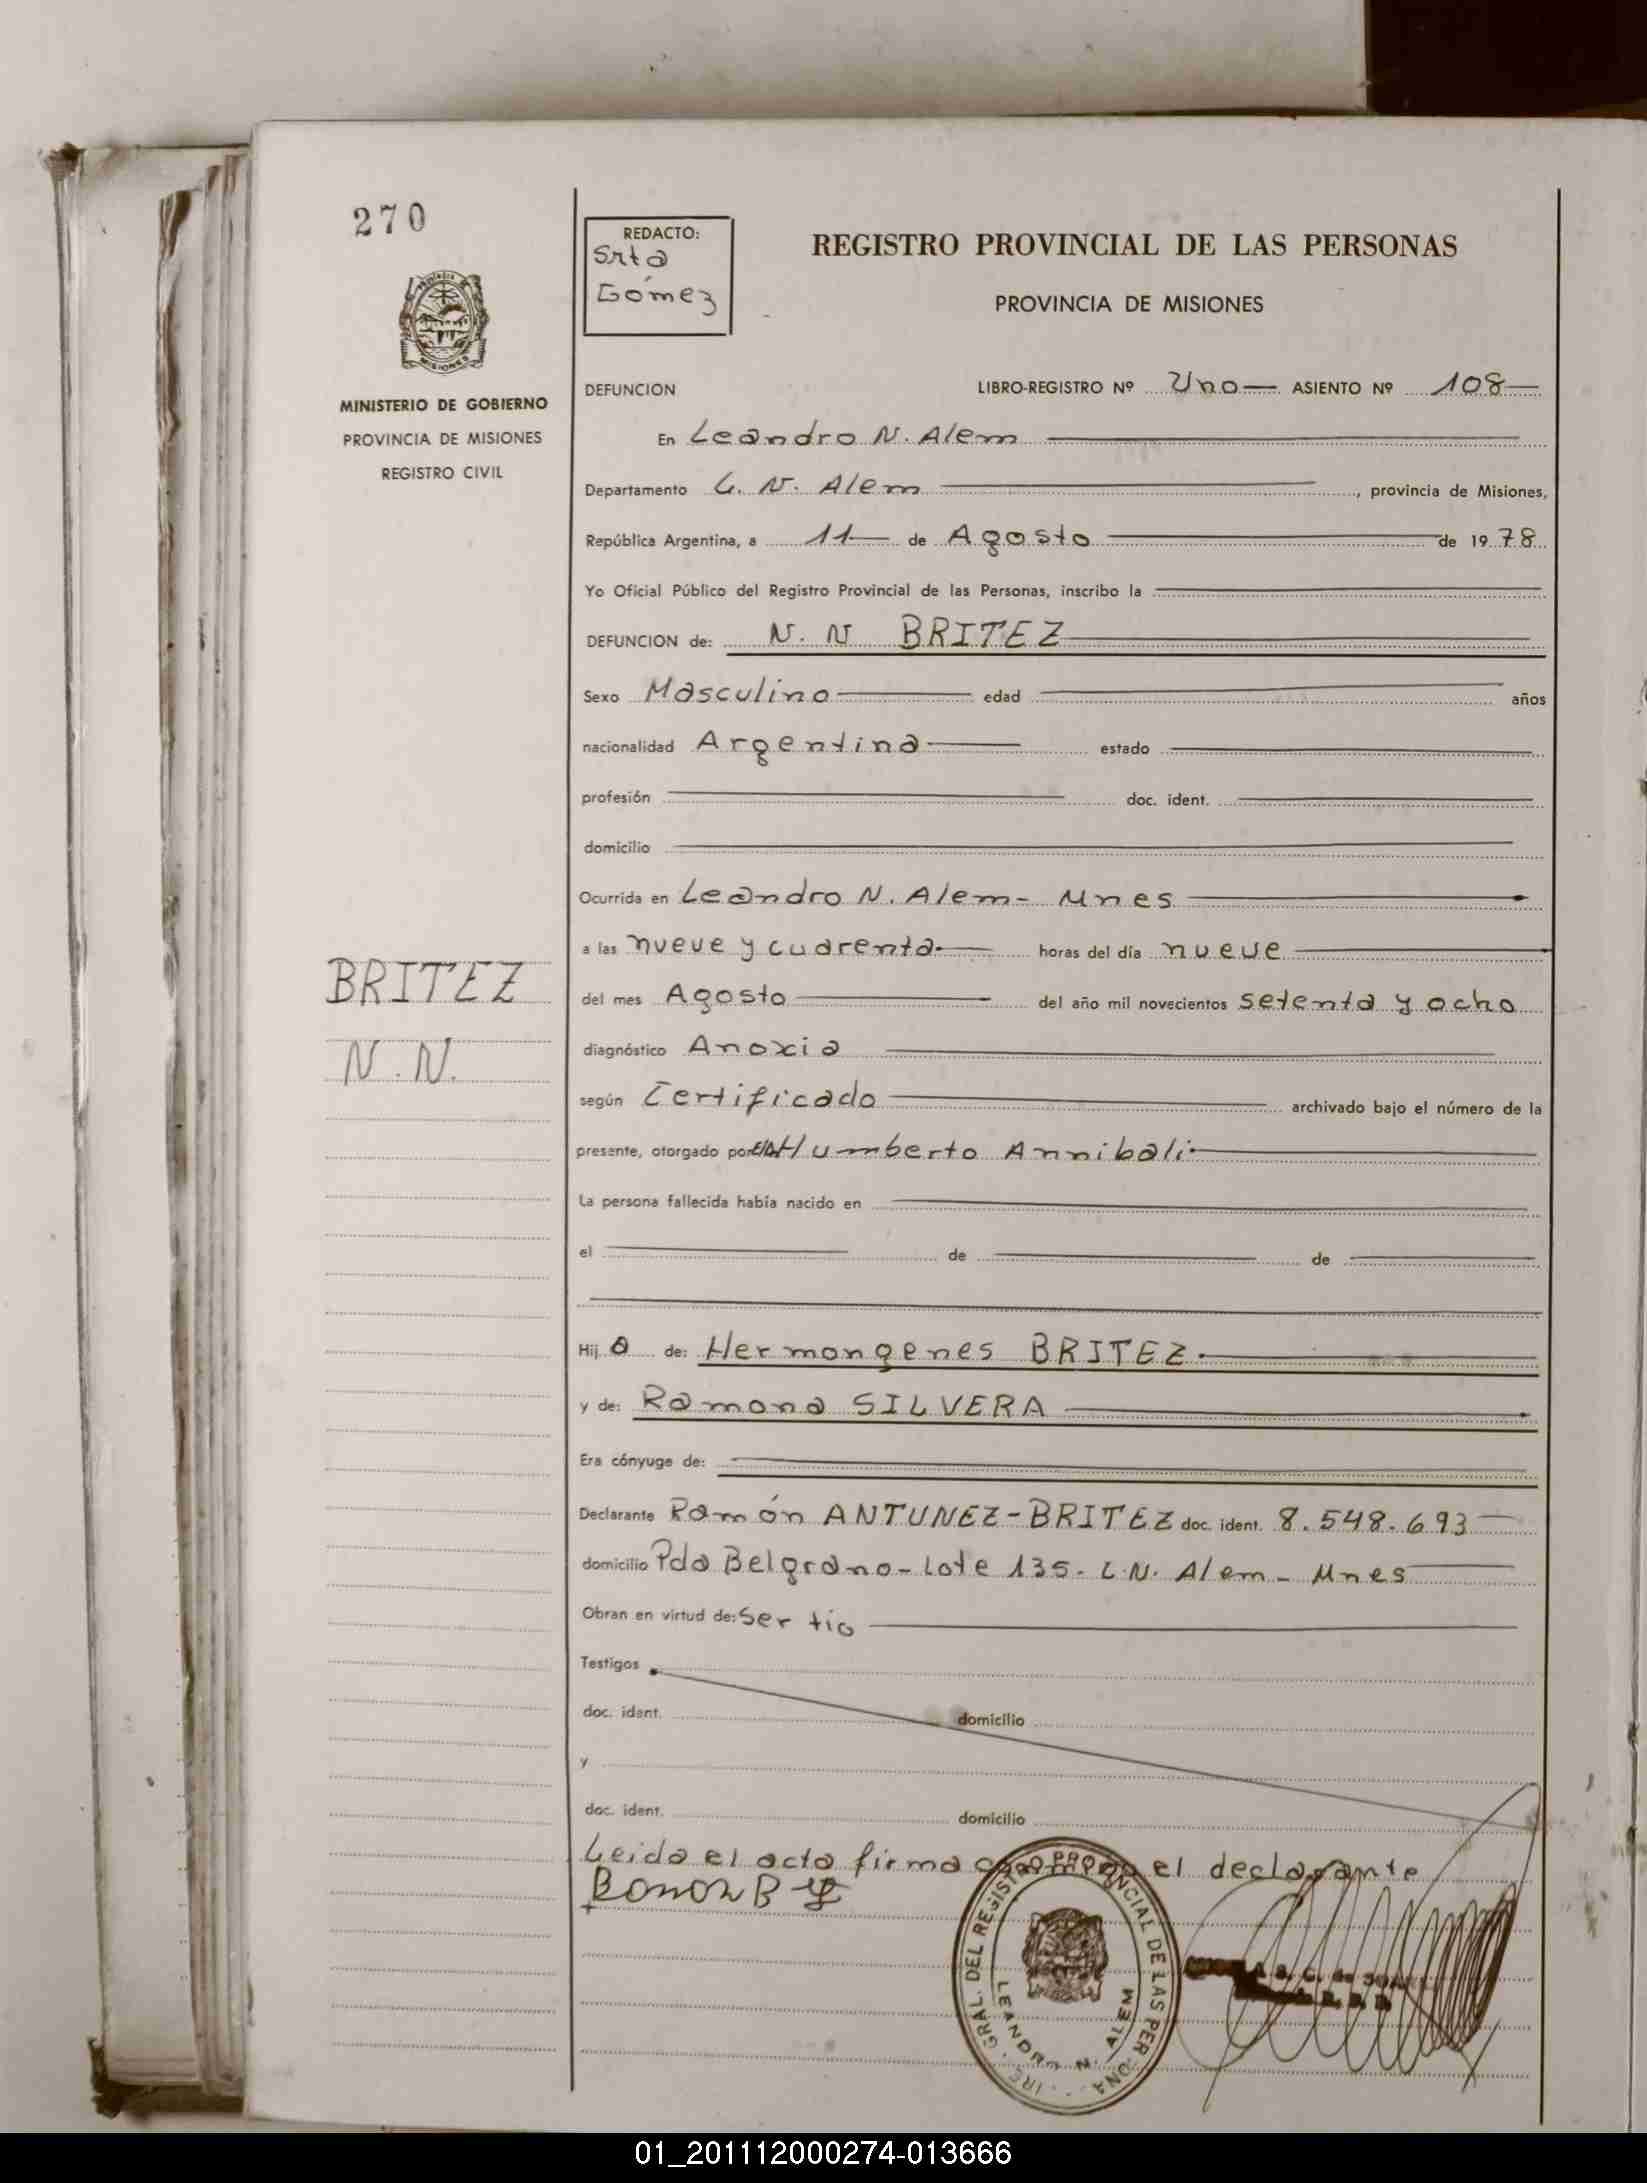 270
REDACTO:
Srta
Gómez
REGISTRO PROVINCIAL DE LAS PERSONAS
PROVINCIA DE MISIONES
MISIONES
MINISTERIO DE GOBIERNO
PROVINCIA DE MISIONES
REGISTRO CIVIL
DEFUNCION LIBRO-REGISTRO Nº Uno ASIENTO Nº 108
En Leandro N. Alem
Departamento L. N. Alem, provincia de Misiones,
República Argentina, a 11 de Agosto de 1978
Yo Oficial Público del Registro Provincial de las Personas, inscribo la
DEFUNCION de: N. N BRITEZ
Sexo Masculino edad años
nacionalidad Argentina estado
profesión doc. ident.
domicilio
Ocurrida en Leandro N. Alem- Mnes
a las nueve y cuarenta horas del día nueve
BRITEZ
N.N.
del mes Agosto del año mil novecientos setenta y ocho
diagnóstico Anoxia
según Certificado archivado bajo el número de la
presente, otorgado por Humberto Annibali
La persona fallecida había nacido en
el de de
Hijo de: Hermongenes BRITEZ
y de: Ramona SILVERA
Era cónyuge de:
Declarante Ramón ANTUNEZ-BRITEZ doc. ident. 8.548.693
domicilio Pda Belgrano- Lote 135- L.N. Alem - Mnes
Obran en virtud de: ser tio
Testigos
doc. ident. domicilio
y
doc. ident. domicilio
Leida el acta firma el declarante
GRAL. DEL REGISTRO PROVINCIAL DE LAS PERSONAS
LEANDRO N. ALEM
01_201112000274-013666